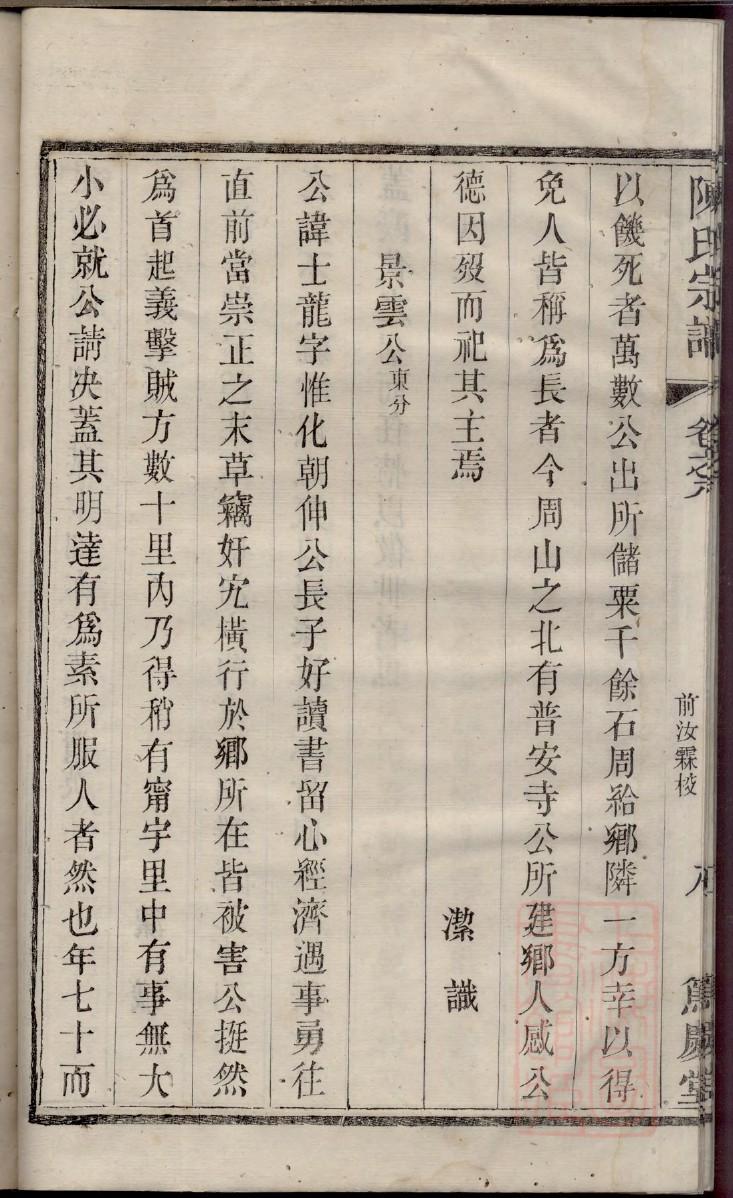 陳氏宗譜
卷之六
前汝霖校
八
篤慶堂
以饑死者萬數公出所儲粟千餘石周給鄉隣一方幸以得
免人皆稱爲長者今周山之北有普安寺公所建鄉人感公
德因歿而祀其主焉
潔識
景雲公東分
公諱士龍字惟化朝伸公長子好讀書留心經濟遇事勇往
直前當崇正之末草竊奸宄橫行於鄉所在皆被害公挺然
爲首起義擊賊方數十里內乃得稍有甯宇里中有事無大
小必就公請决蓋其明達有爲素所服人者然也年七十而